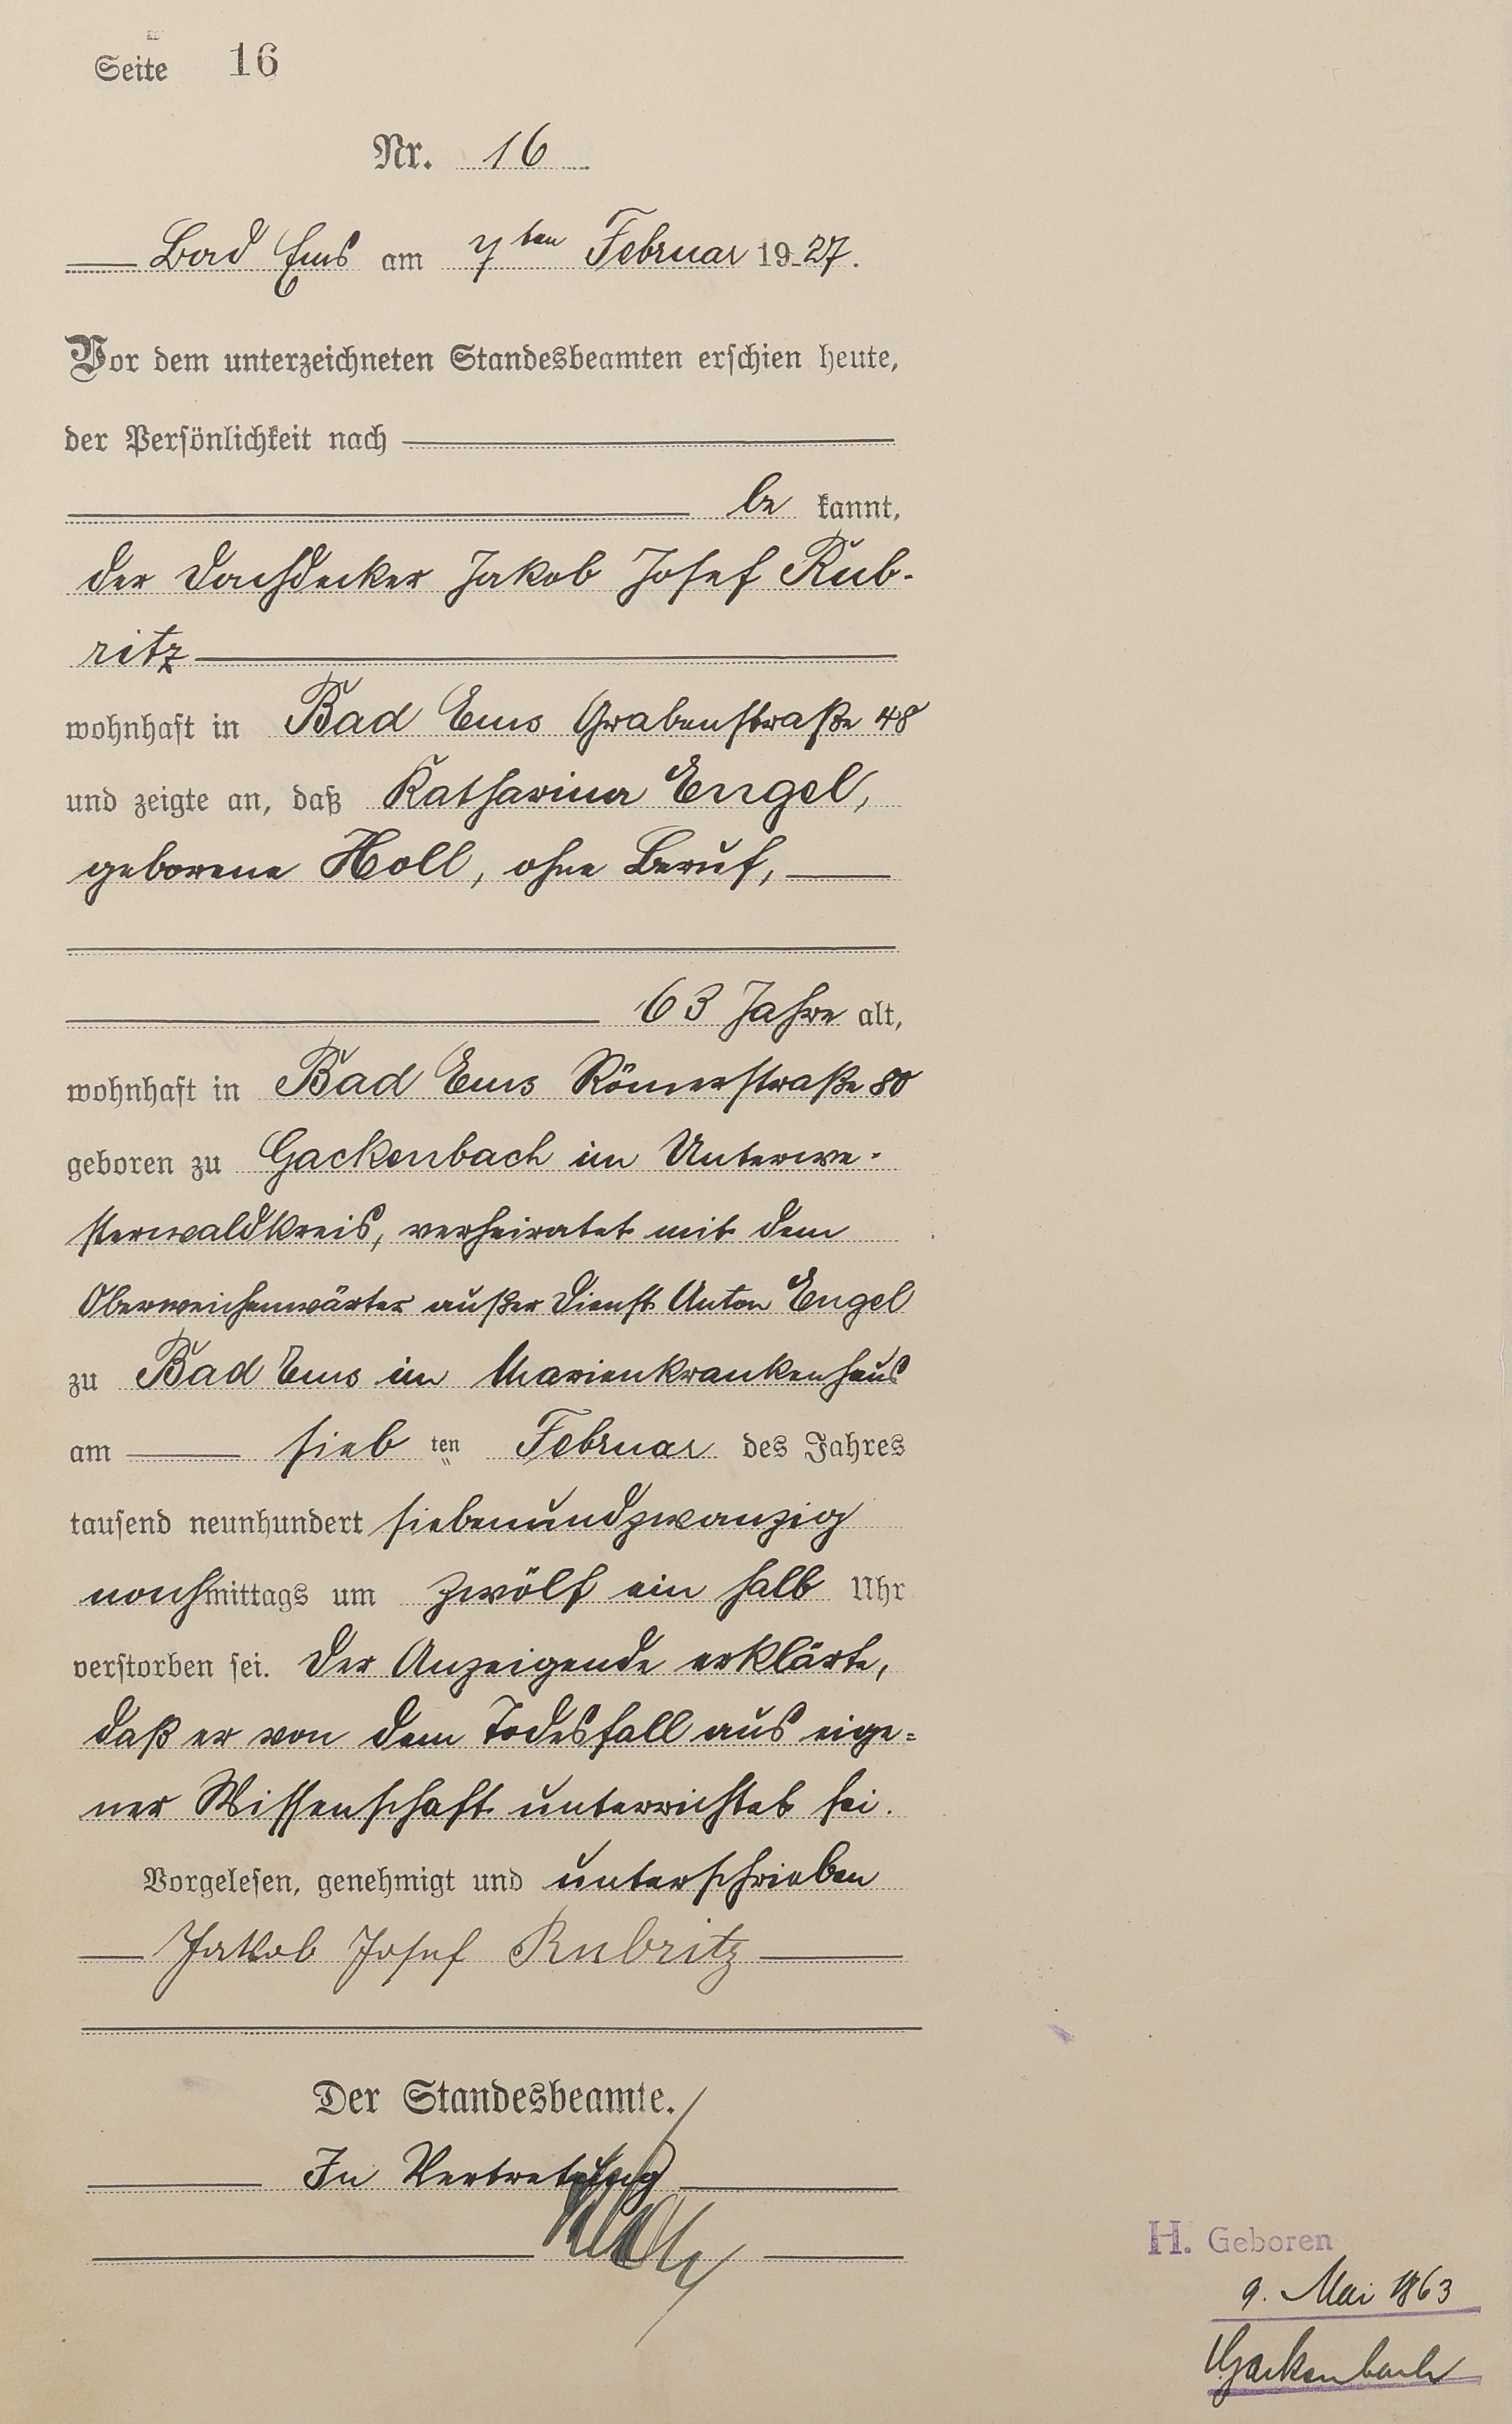 Seite 16
Nr. 16
Bad Ems am 7ten Februar 1927.
Vor dem unterzeichneten Standesbeamten erschien heute,
der Persönlichkeit nach
be kannt,
der Dachdecker Jakob Josef Rub-
ritz
wohnhaft in Bad Ems Grabenstraße 48
und zeigte an, daß Katharina Engel,
geborene Holl, ohne Beruf,
63 Jahre alt,
wohnhaft in Bad Ems Römerstraße 80
geboren zu Gackenbach im Unterwe-
sterwaldkreis, verheiratet mit dem
Oberweichenwärter außer Dienst Anton Engel
zu Bad Ems im Marienkrankenhaus
am sieb ten Februar des Jahres
tausend neunhundert siebenundzwanzig
nachmittags um zwölf ein halb Uhr
verstorben sei. Der Anzeigende erklärte,
daß er von dem Todesfall aus eige-
ner Wissenschaft unterrichtet sei.
Vorgelesen, genehmigt und unterschrieben
Jakob Josef Rubritz
Der Standesbeamte.
In Vertretung
H. Geboren
9. Mai 1863
Gackenbach